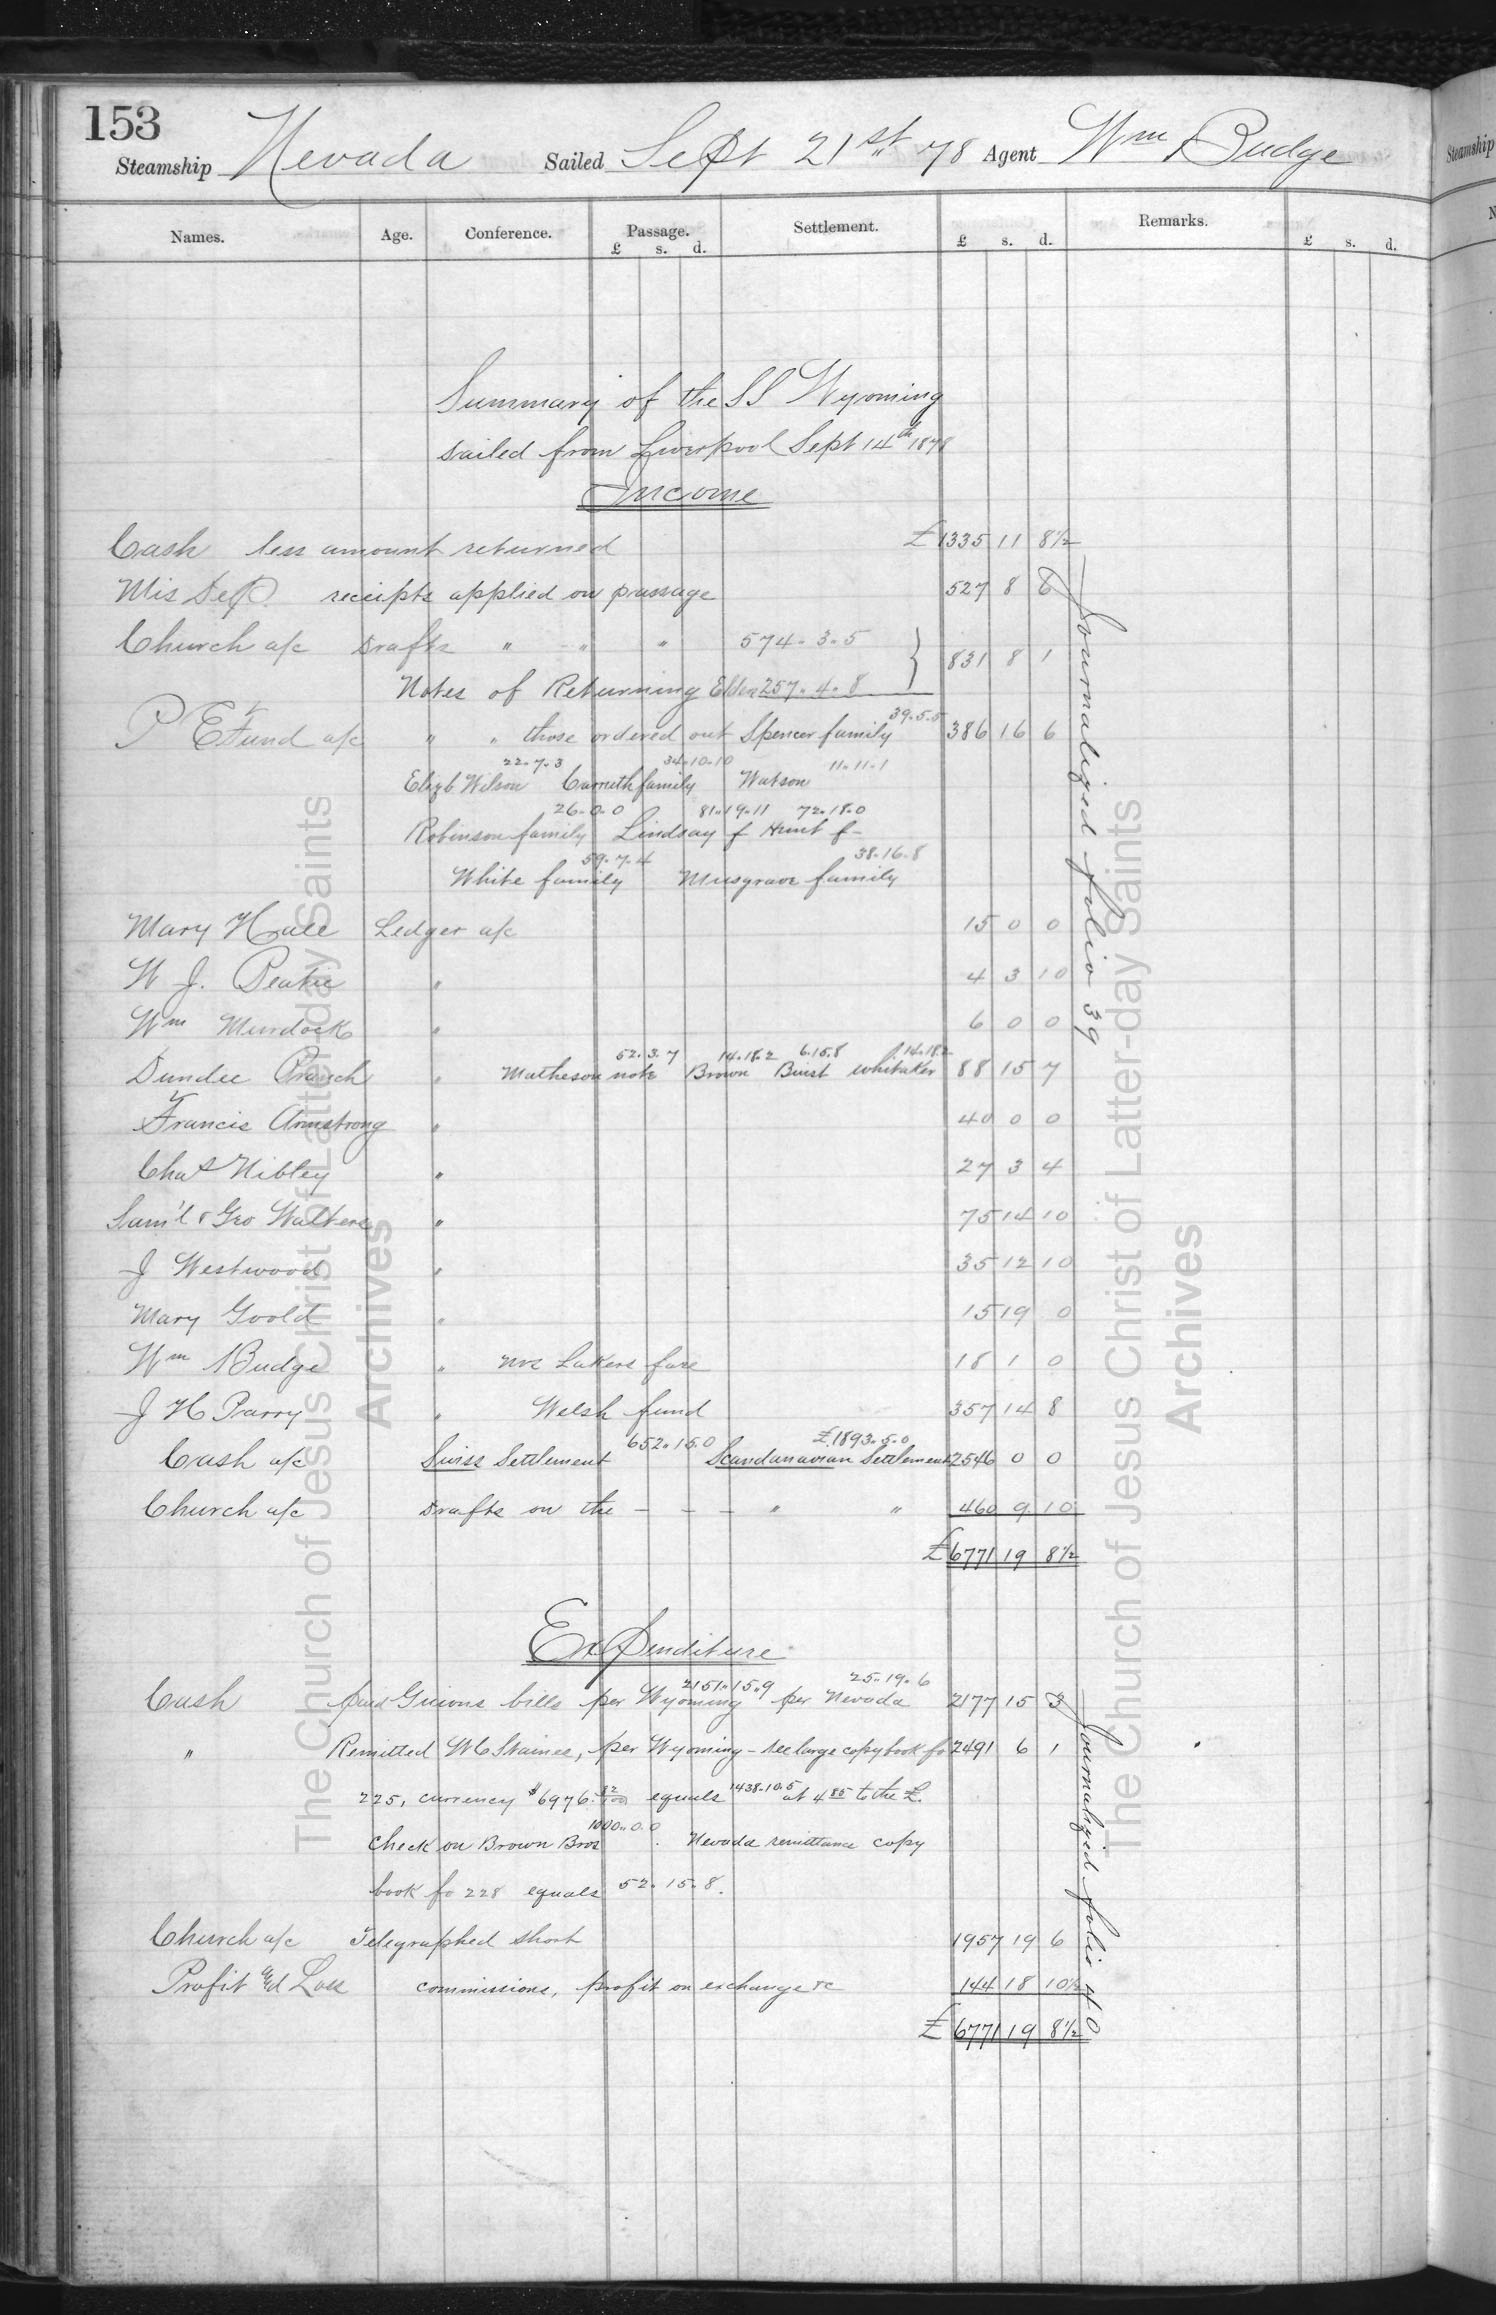 153
Steamship Nevada Sailed Sept 21st 78 Agent Wm Budge
Names. Age. Conference. Passage. Settlement. Remarks.
£ s. d. £ s. d. £ s. d.
Summary of the SS Wyoming
sailed from Liverpool Sept 14th 1878
Income
Cash less amount returned £1335 11 8½
Mis Dep. receipts applied on passage 527 8 6
Church a/c Drafts " " " 574.3.5
831 8 1
Notes of Returning Elders 257.4.8
39.5.5
P E Fund a/c " " those ordered out Spencer family 386 16 6
22.7.3 34.10.10 11.11.1
Elizb Wilson Carruth family Watson
26.0.0 81.19.11 72.18.0
Robinson family Lindsay f Hunt f-
59.7.4 38.16.8
White family Musgrave family
Mary Hall Ledger a/c 15 0 0
W J. Beatie " 4 3 10
Wm Murdock " 6 0 0
52.3.7 14.18.2 6.15.8 14.18.2
Dundee Branch " Matheson note Brown Buist Whitaker 88 15 7
Francis Armstrong " 40 0 0
Chas Nibley " 27 3 4
Sam'l & Geo Walters " 75 14 10
J Westwood " 35 12 10
Mary Goold " 15 19 0
Wm Budge " Mrs Lakers fare 18 1 0
J H Parry " Welsh fund 357 14 8
652.15.0 £1893.5.0
Cash a/c Swiss Settlement Scandanavian Settlement 2546 0 0
Church a/c Drafts on the - - - " " 460 9 10
£6771 19 8½
Journalized folio 39
Expenditure
2151.15.9 25.19.6
Cash paid Guions bills per Wyoming per Nevada 2177 15 3
" Remitted W C Staines, per Wyoming - see large copy book fo 2491 6 1
225, currency $6976.82/100 equals 1438.10.5 at 4 85 to the £.
1000.0.0
Check on Brown Bros . Nevada remittance copy
book fo 228 equals 52.15.8.
Church a/c Telegraphed short 1957 19 6
Profit and Loss commissions, profit on exchange &c 144 18 10½
£ 6771 19 8½
Journalized folio 40
The Church of Jesus Christ of Latter-day Saints
Archives
The Church of Jesus Christ of Latter-day Saints
Archives
Steamship